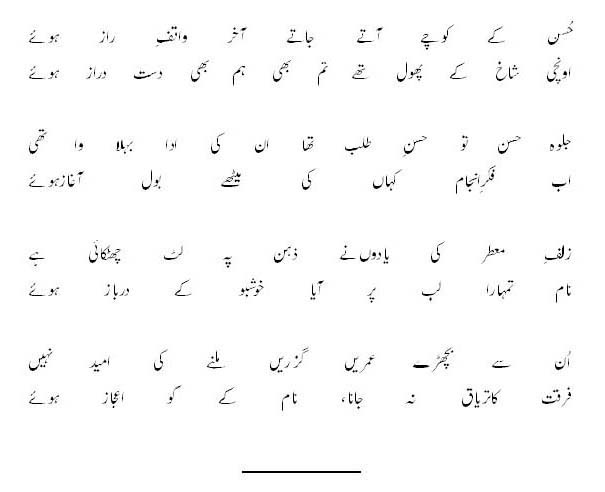 حُسن کے کوچے آتے جاتے آخر واقفِ راز ہوئے
اونچی شاخ کے پھول تھے تم بھی ہم بھی دست دراز ہوئے
جلوہ حسن تو حسنِ طلب تھا ان کی ادا بہلاوا تھی
اب فکرِانجام کہاں کی میٹھے بول آغازہوئے
زلفِ معطر کی یادوں نے ذہن پہ لٹ چھٹکائی ہے
نام تمہارا لب پر آیا خوشبو کے درباز ہوئے
اُن سے بچھڑے عمریں گزریں ملنے کی امید نہیں
فرقت کاتریاق نہ جانا، نام کے کو اعجاز ہوئے